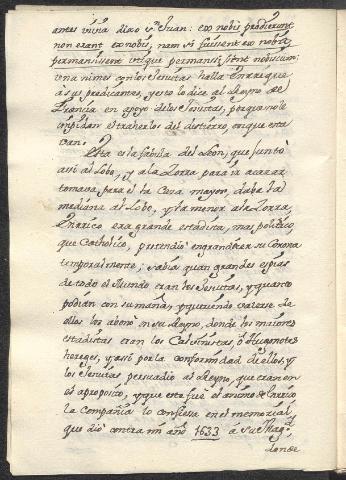 antes vivia dixo S.n Juan: ex nobis prodierunt
non erant ex nobis, nam si fuissent ex nobis
permansissent utique permansissent nobiscum;
unanimes con los Jesuitas halla Enrrique
à sus predicantes, y esto lo dice al Reyno de
Francia en apoyo de los Jesuitas, porque no le
impidan el traherlos del destierro, en que esta-
van:
Esta es la fabula del Leon, que juntò
assi al Lobo, y à la Zorra para ir à cazar
tomava para el la Caza mayor, daba la
mediana al Lobo, y la menor à la Zorra,
Enrrico era grande estadista, mas politico,
que Catholico, pretendiò engrandecer su Corona
temporalmente; sabia quan grandes espias
de todo el Mundo eran los Jesuitas, y quanto
podian con su maña; y queriendo valerse de
ellos los abonò en su Reyno, donde los maiores
estadistas eran los Calvinistas, ò Hugonotes
hereges, y assi por la conformidad de ellos, y
los Jesuitas persuadiò al Reyno, que eran en
el aproposito; y que este fue el animo de Enrrico
la Compañia lo confiesa en el memorial,
que diò contra mi año 1633 à su Mag.d
donde